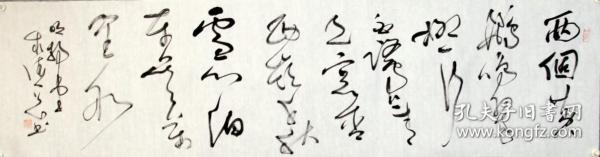 两個黄
鹂鸣翠
柳一行
白鹭上青
天窗含
西岭千秋
雪门泊
东吴万
里船
孔夫子旧书网
www.kongfz.com